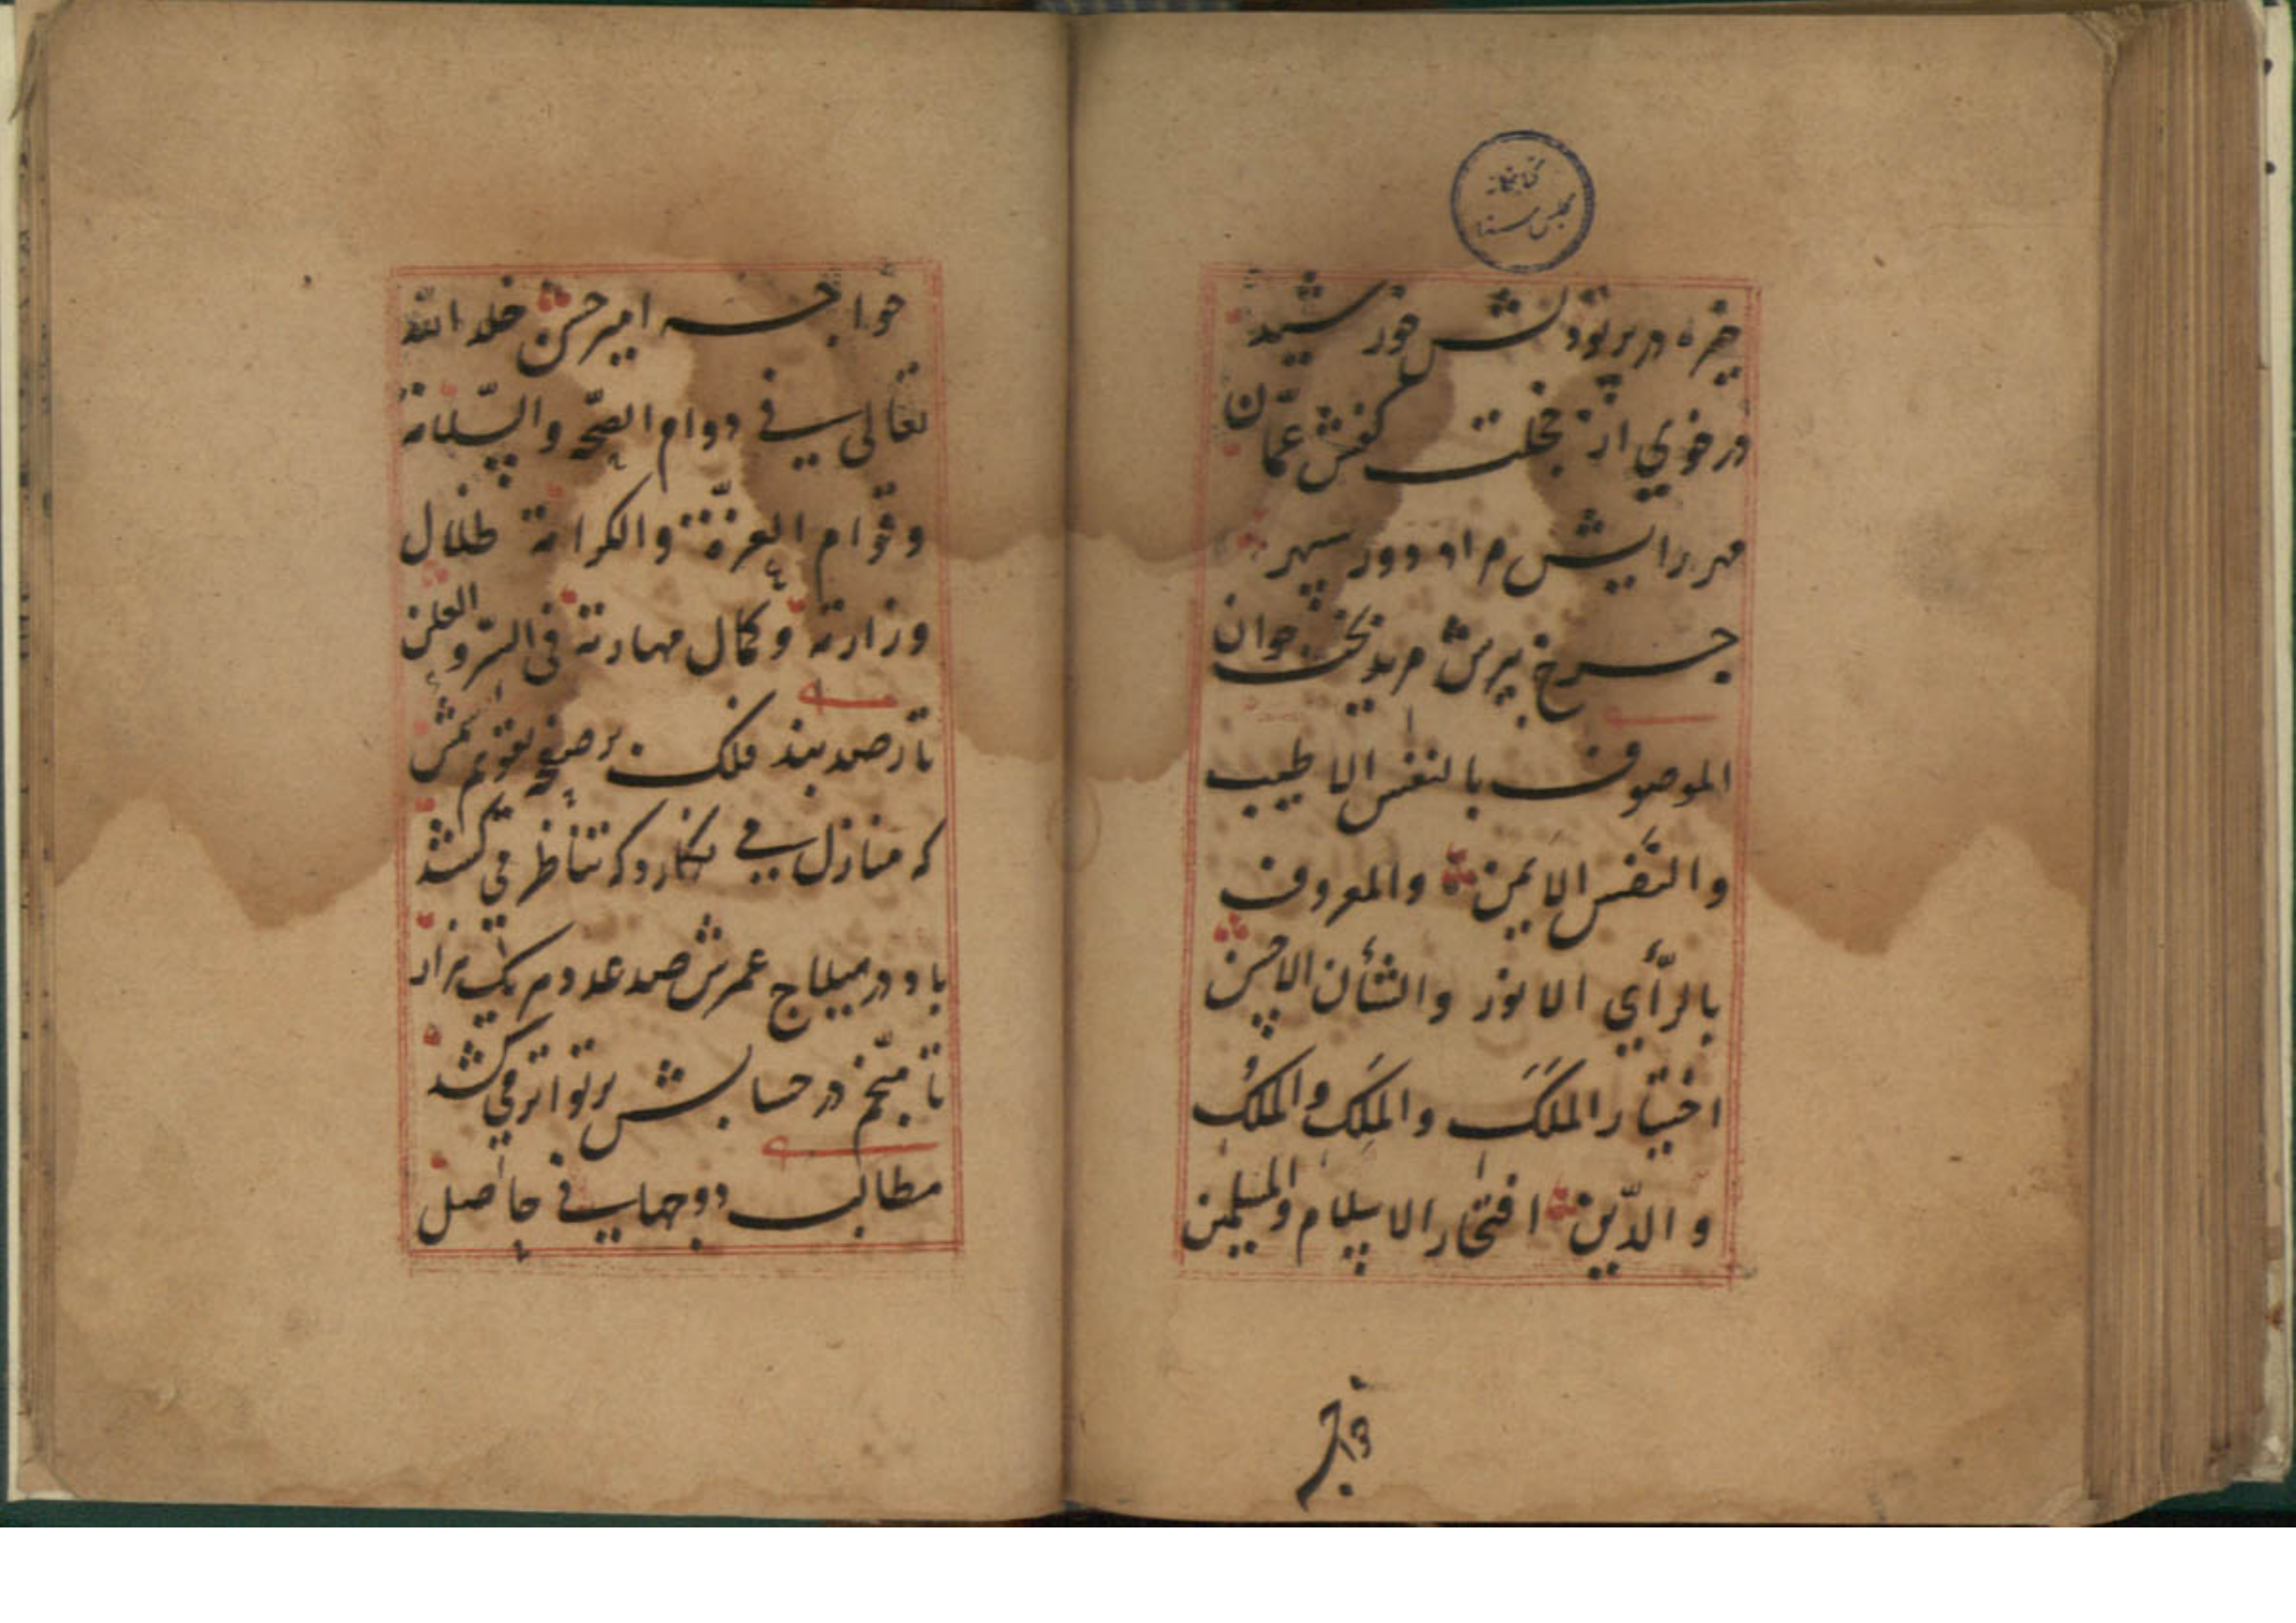 کتابخانه
مجلس سنا
خیره در پرتو دلش خورشید
در خوی از خجلت کفش عمّان
مهر رایش مراد دور سپهر
چرخ پیرش مرید بخت جوان
الموصوف بالنفس الاطیب
والنَّفس الایمن والمعروف
بالرّأی الانور والشأن الاحسن
اختیار المَلَک والمَلِک والمُلک
والدّین افتخار الاسلام والمسلمین
خواجه
خواجه امیر حسن خلد الله
تعالی فی دوام الصحّة والسّلامة
وقوام العزّة والکرامة ظلال
وزارته وکمال مهارته فی السّر والعلن
تا رصدبند فلک بر صفحه تقویم شمس
که منازل می نکارد که تناظر می کشد
باد در میلاج عمرش صد عدد هر یک هزار
تا منجّم در حسابش بر تواتر می کشد
مطالب دو جهانی حاصل